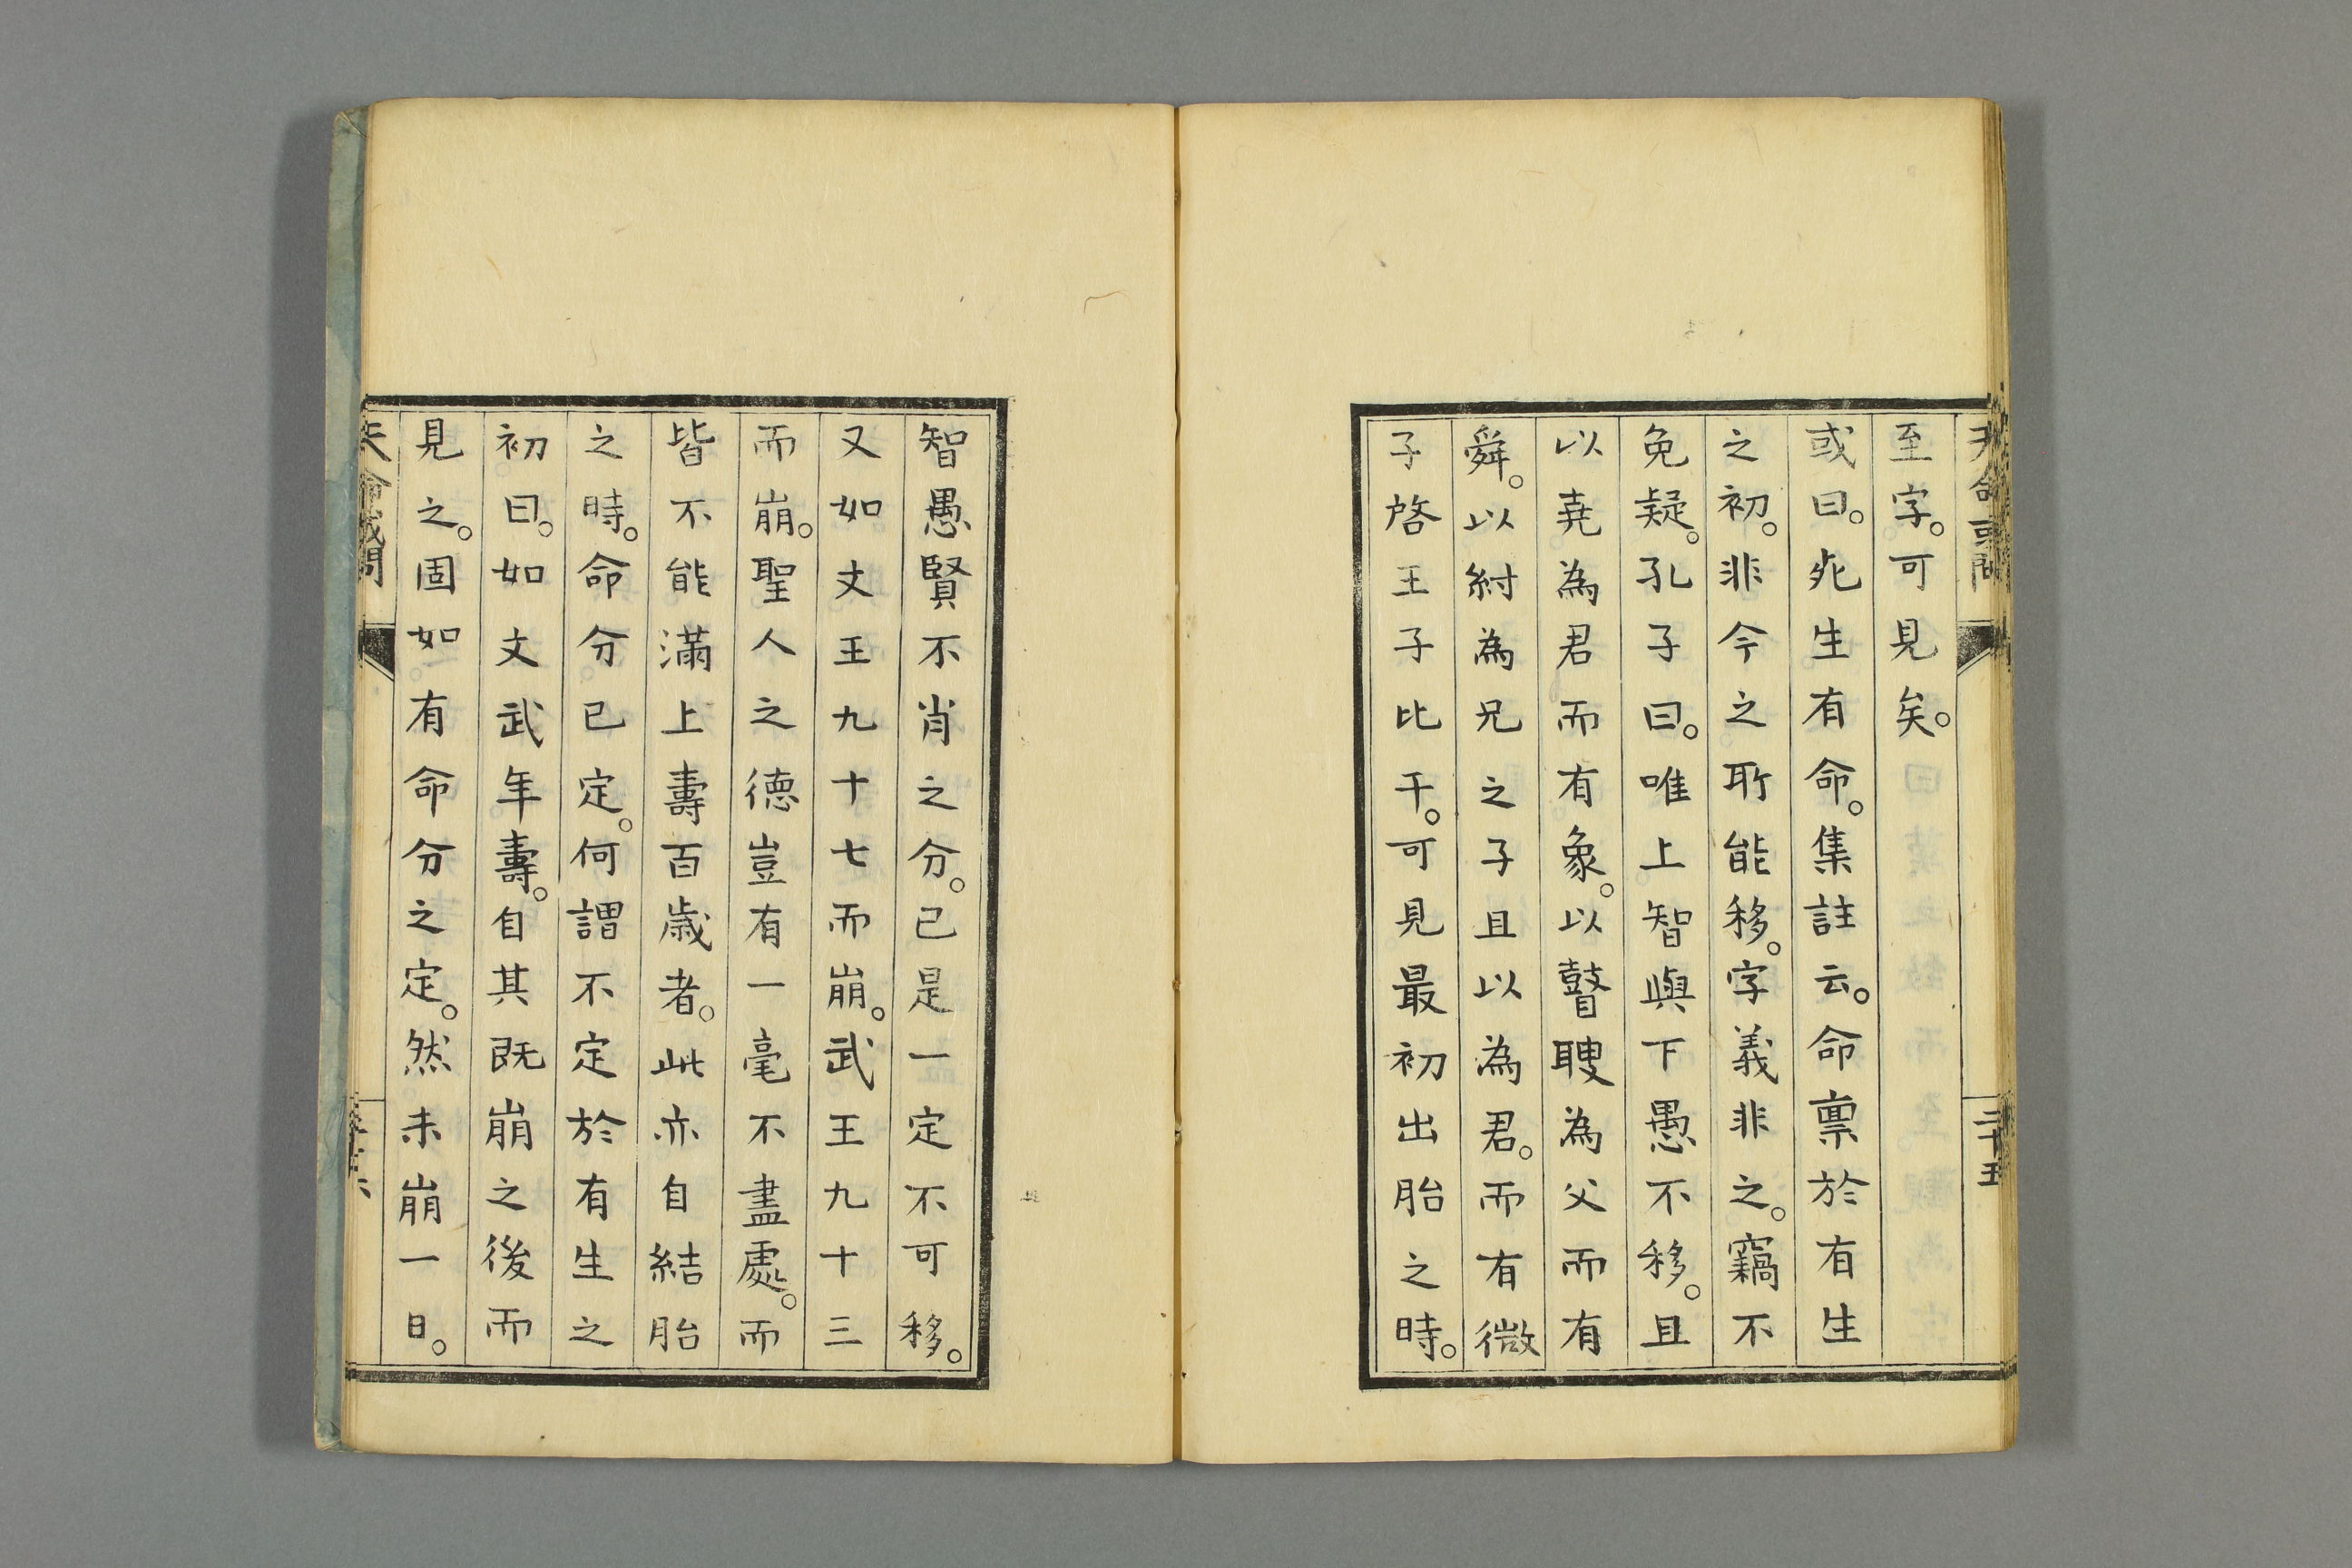 天命或問
二十五
至字。可見矣。
或曰。死生有命。集註云。命禀於有生
之初。非今之所能移。字義非之。竊不
免疑。孔子曰。唯上智與下愚不移。且
以堯為君而有象。以瞽瞍為父而有
舜。以紂為兄之子且以為君。而有微
子啓王子比干。可見最初出胎之時。
智愚賢不肖之分。已是一定不可移。
又如文王九十七而崩。武王九十三
而崩。聖人之德豈有一毫不盡處。而
皆不能滿上壽百歲者。此亦自結胎
之時。命分已定。何謂不定於有生之
初曰。如文武年壽。自其既崩之後而
見之。固如有命分之定。然未崩一日。
天命或問